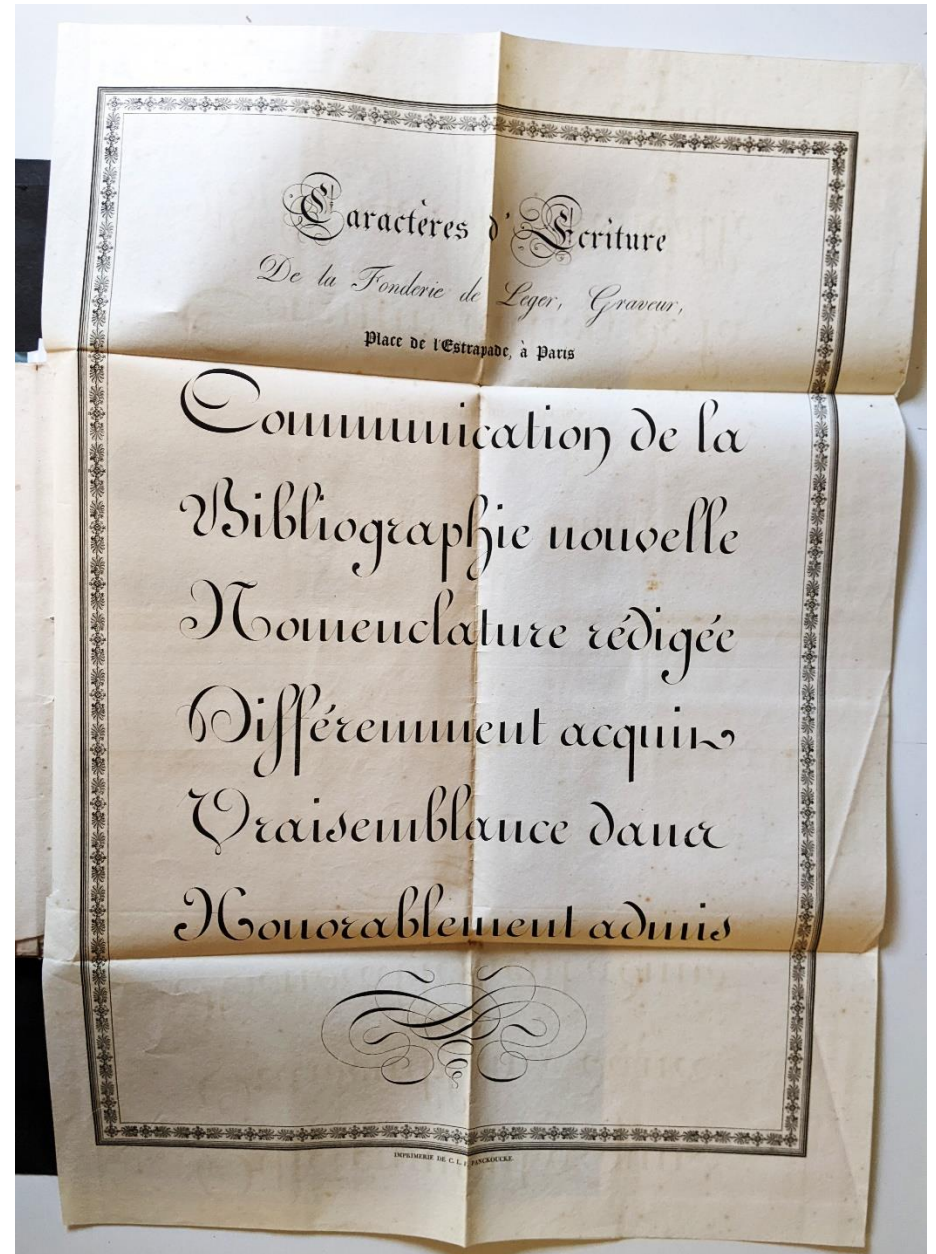 Caractères d'Ecriture
De la Fonderie de Leger, Graveur,
Place de l'Estrapade, à Paris
Communication de la
Bibliographie nouvelle
Nomenclature rédigée
Différemment acquis
Vraisemblance dans
Honorablement admis
IMPRIMERIE DE C. L. F. PANCKOUCKE.